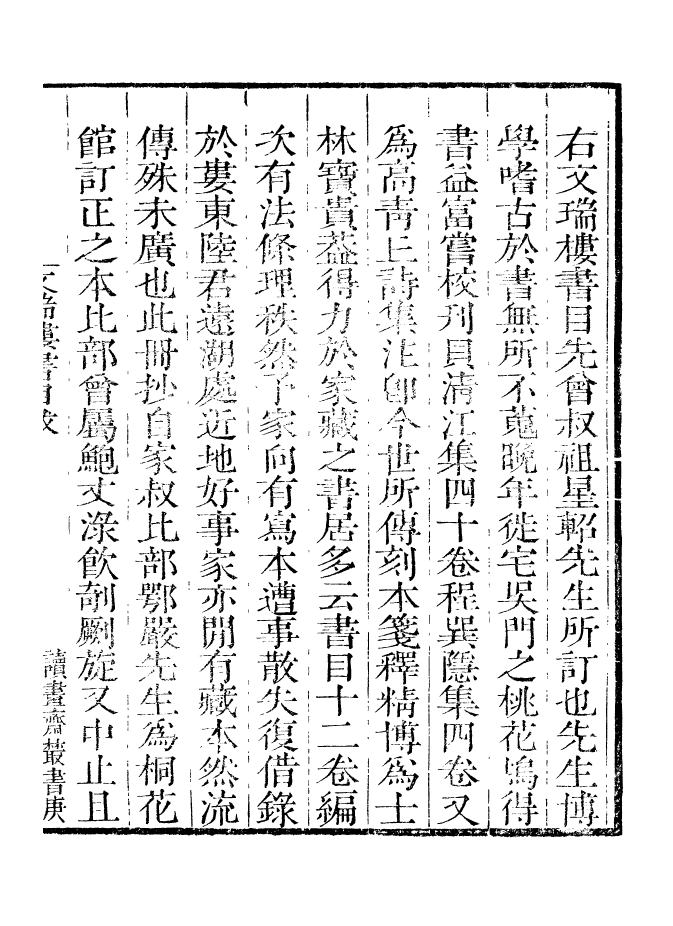 右文瑞樓書目先曾叔祖星軺先生所訂也先生博
學嗜古於書無所不蒐晚年徙宅吳門之桃花塢得
書益富嘗校刊貝淸江集四十卷程巽隱集四卷又
爲高靑丘詩集注卽今世所傳刻本箋釋精博爲士
林寶貴葢得力於家藏之書居多云書目十二卷編
次有法條理秩然予家向有寫本遭事散失復借錄
於婁東陸君遠湖處近地好事家亦閒有藏本然流
傳殊未廣也此冊抄自家叔比部鄂巖先生爲桐花
館訂正之本比部曾屬鮑丈淥飮剞劂旋又中止且
文瑞樓書目跋
讀畫齋叢書庚